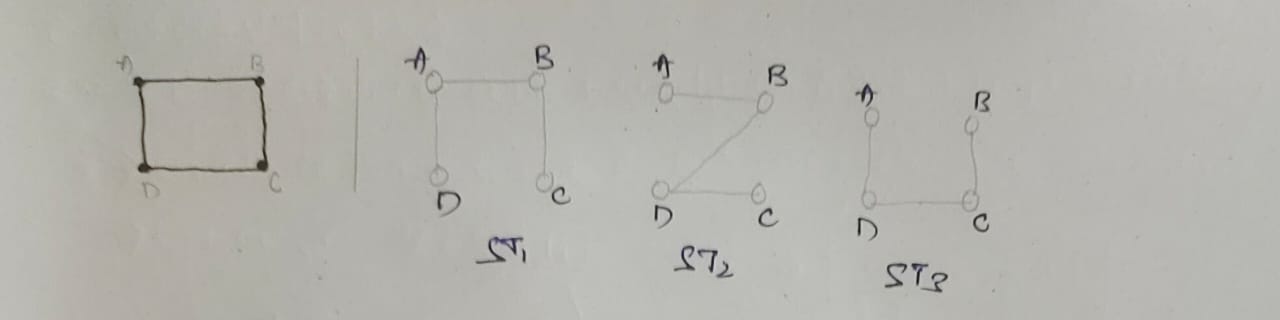 A B
D C
A B
D C
ST1
A B
D C
ST2
A B
D C
ST3